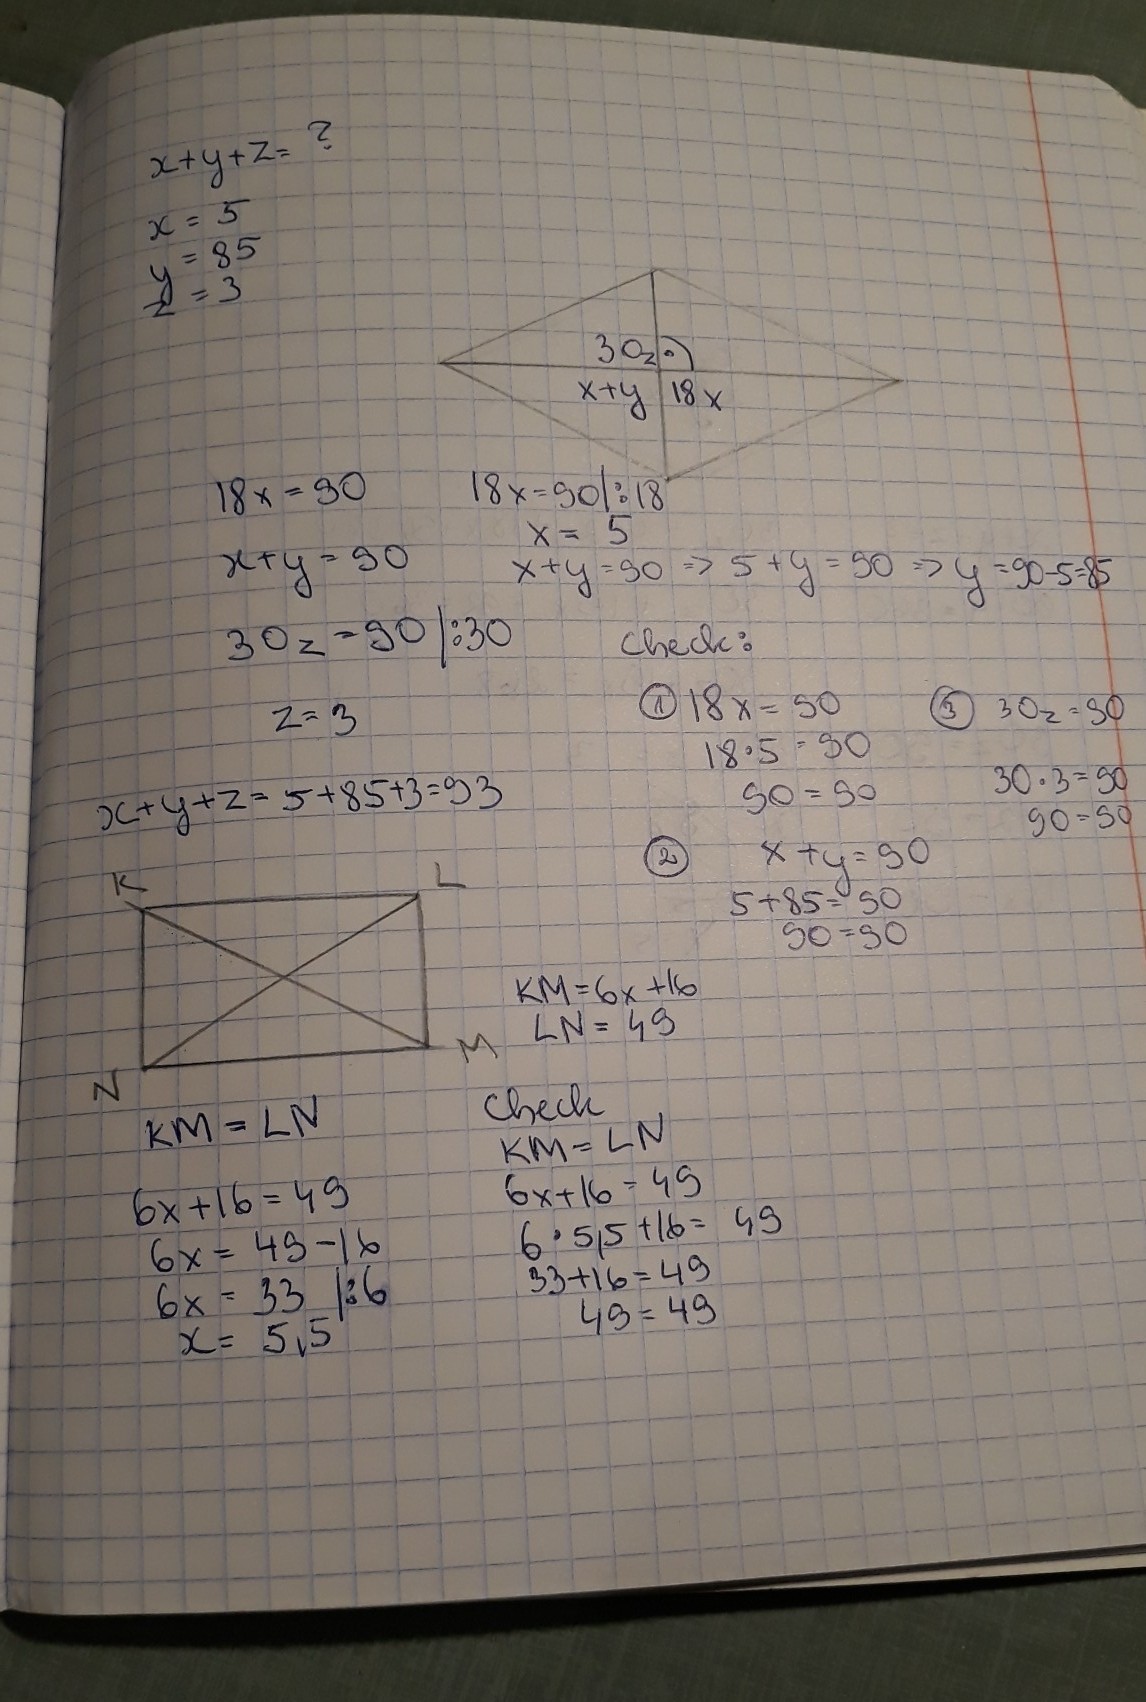 x+y+z= ?
x = 5
y = 85
z = 3
30z
x+y 18x
18x = 90
18x=90 |:18
x = 5
x+y = 90
x+y=90 => 5+y=90 => y=90-5=85
30z = 90 |:30
z = 3
x+y+z= 5+85+3=93
Check:
① 18x = 90
18·5 = 90
90 = 90
② x+y=90
5+85=90
90=90
③ 30z=90
30·3=90
90=90
K L
N M
KM=6x+16
LN= 49
KM = LN
6x+16=49
6x= 49-16
6x= 33 |:6
x= 5,5
Check
KM=LN
6x+16=49
6·5,5+16= 49
33+16=49
49=49